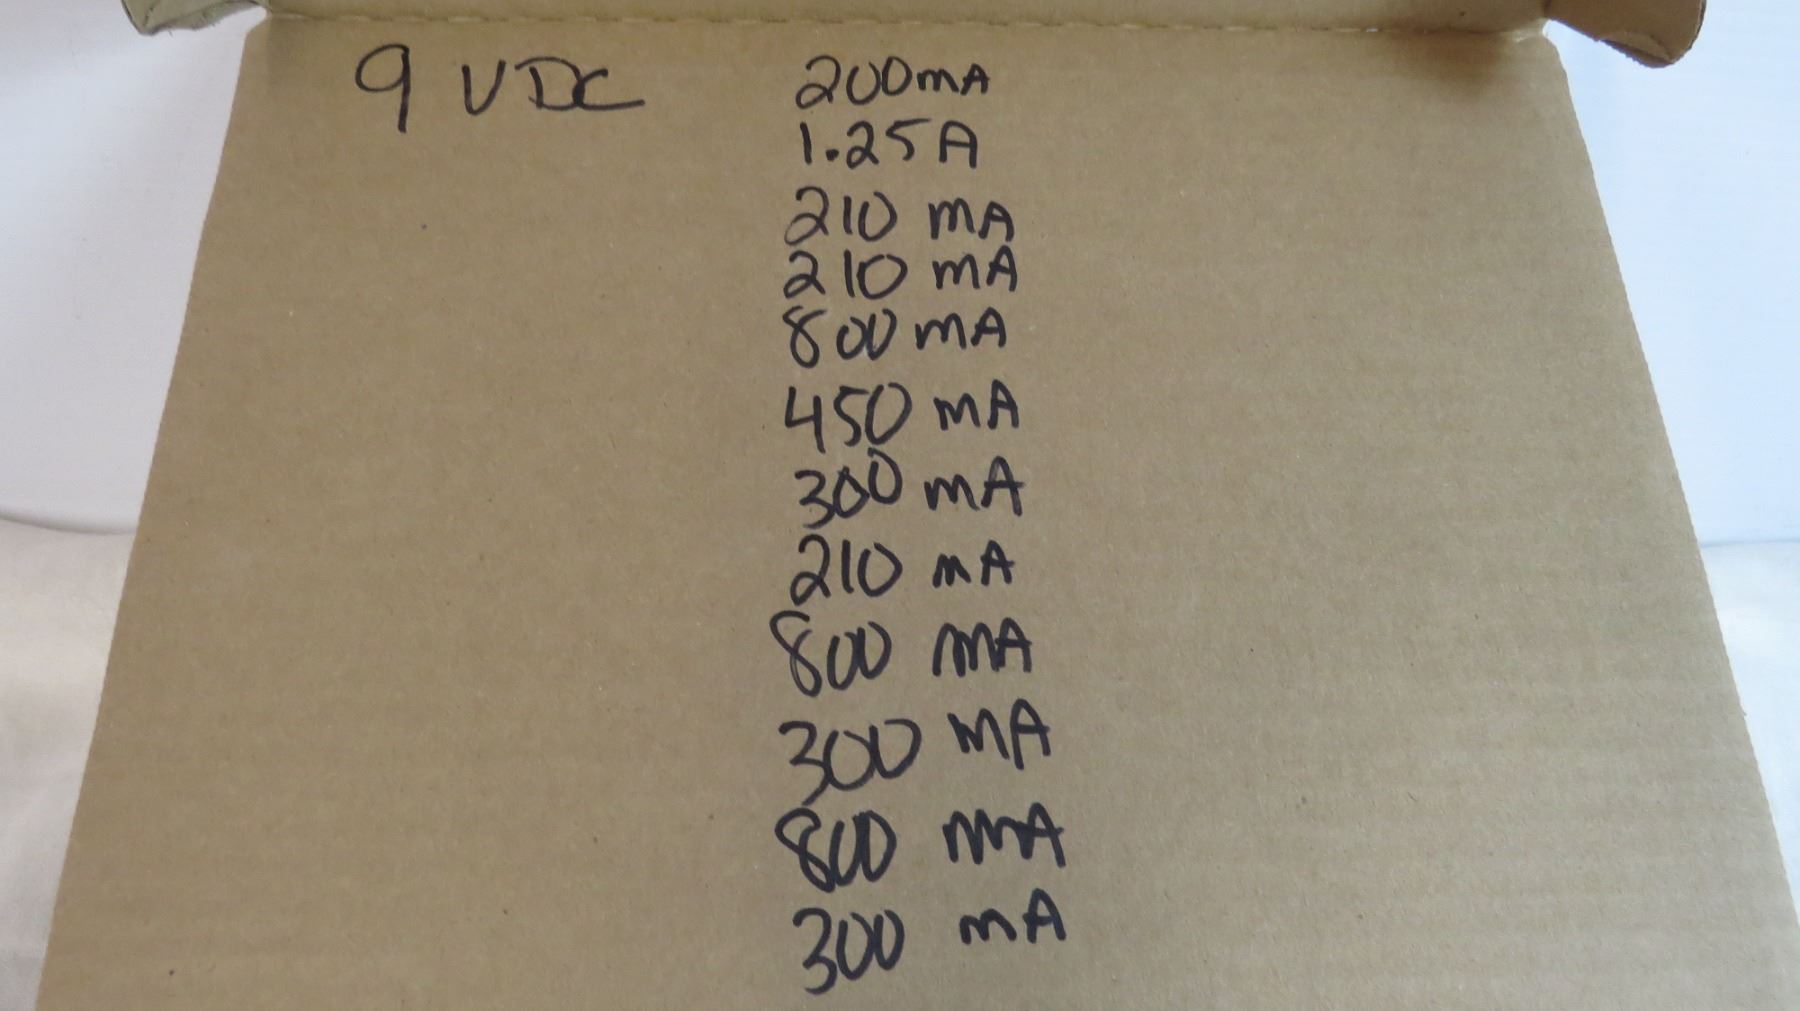 9 VDC 200mA
1.25A
210 mA
210 mA
800 mA
450 mA
300 mA
210 mA
800 mA
300 mA
800 mA
300 mA